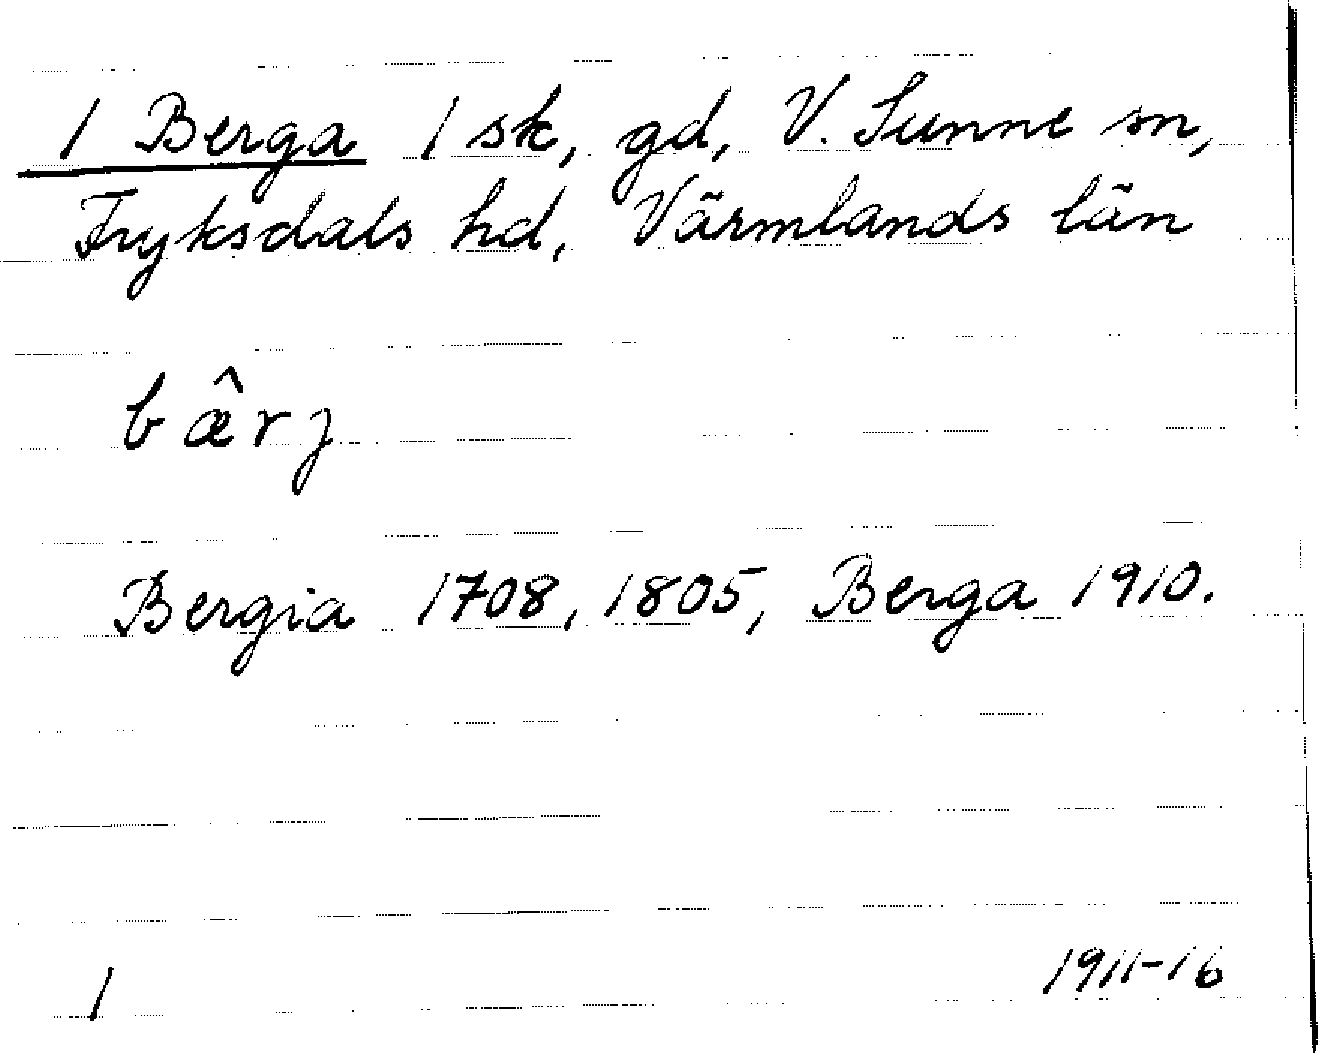 1 Berga 1 sk, gd, V. Sunne sn,
Fryksdals hd, Värmlands län
bæ̂rj
Bergia 1708, 1805, Berga 1910.
1911-16
1